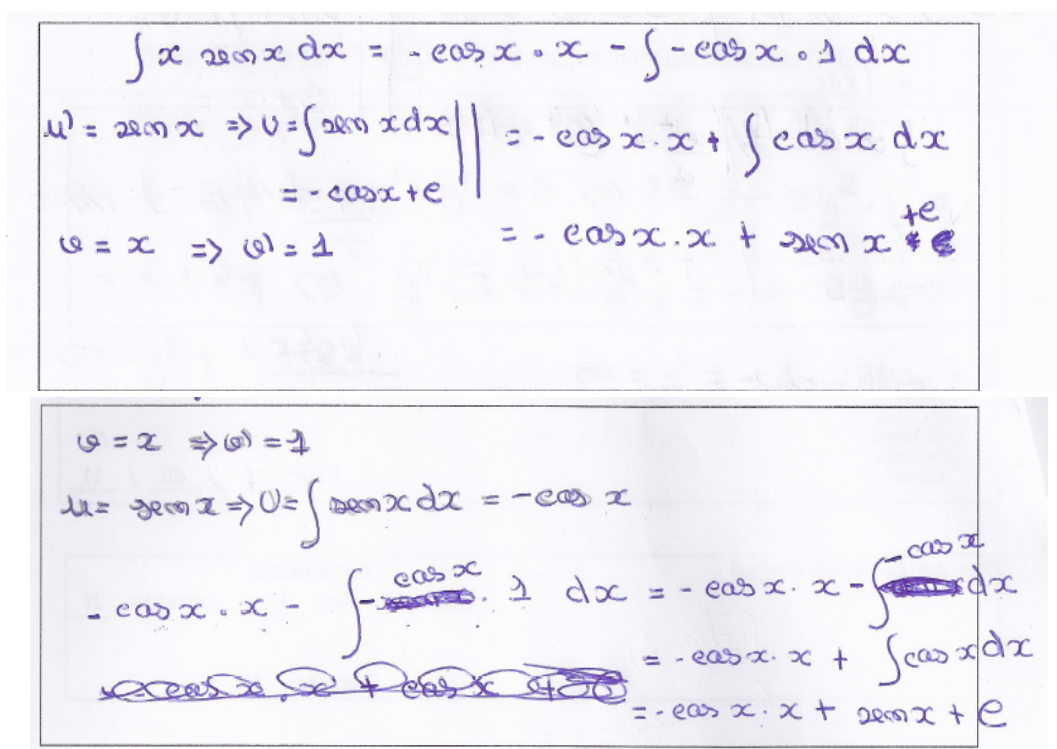 ∫ x sen x dx = - cos x · x - ∫ - cos x · 1 dx
u' = sen x => U = ∫ sen x dx || = - cos x · x + ∫ cos x dx
= - cos x + c
v = x => v' = 1 = - cos x · x + sen x + c
v = x => v' = 1
u = sen x => U = ∫ sen x dx = - cos x
- cos x · x - ∫ - cos x · 1 dx = - cos x · x - ∫ - cos x dx
= - cos x · x + ∫ cos x dx
= - cos x · x + sen x + c